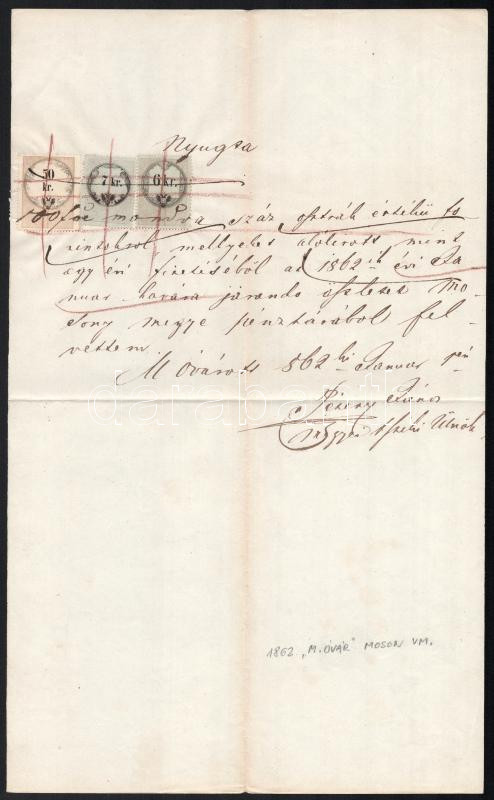 Nyugta
50 kr. 7 kr. 6 kr.
100 for mondva száz osztrák értékü fo
rintokrol, mellyeket alólirott mint
egy évi fizetéséböl az 1862ik évi Ja
nuar havára járando összeget Mo
sony megye pénztárából fel-
vettem.
M Óvárott 862 ki Januar
János
megyei Ülnök
darabanth
1862 "M.ÓVÁR" MOSON VM.